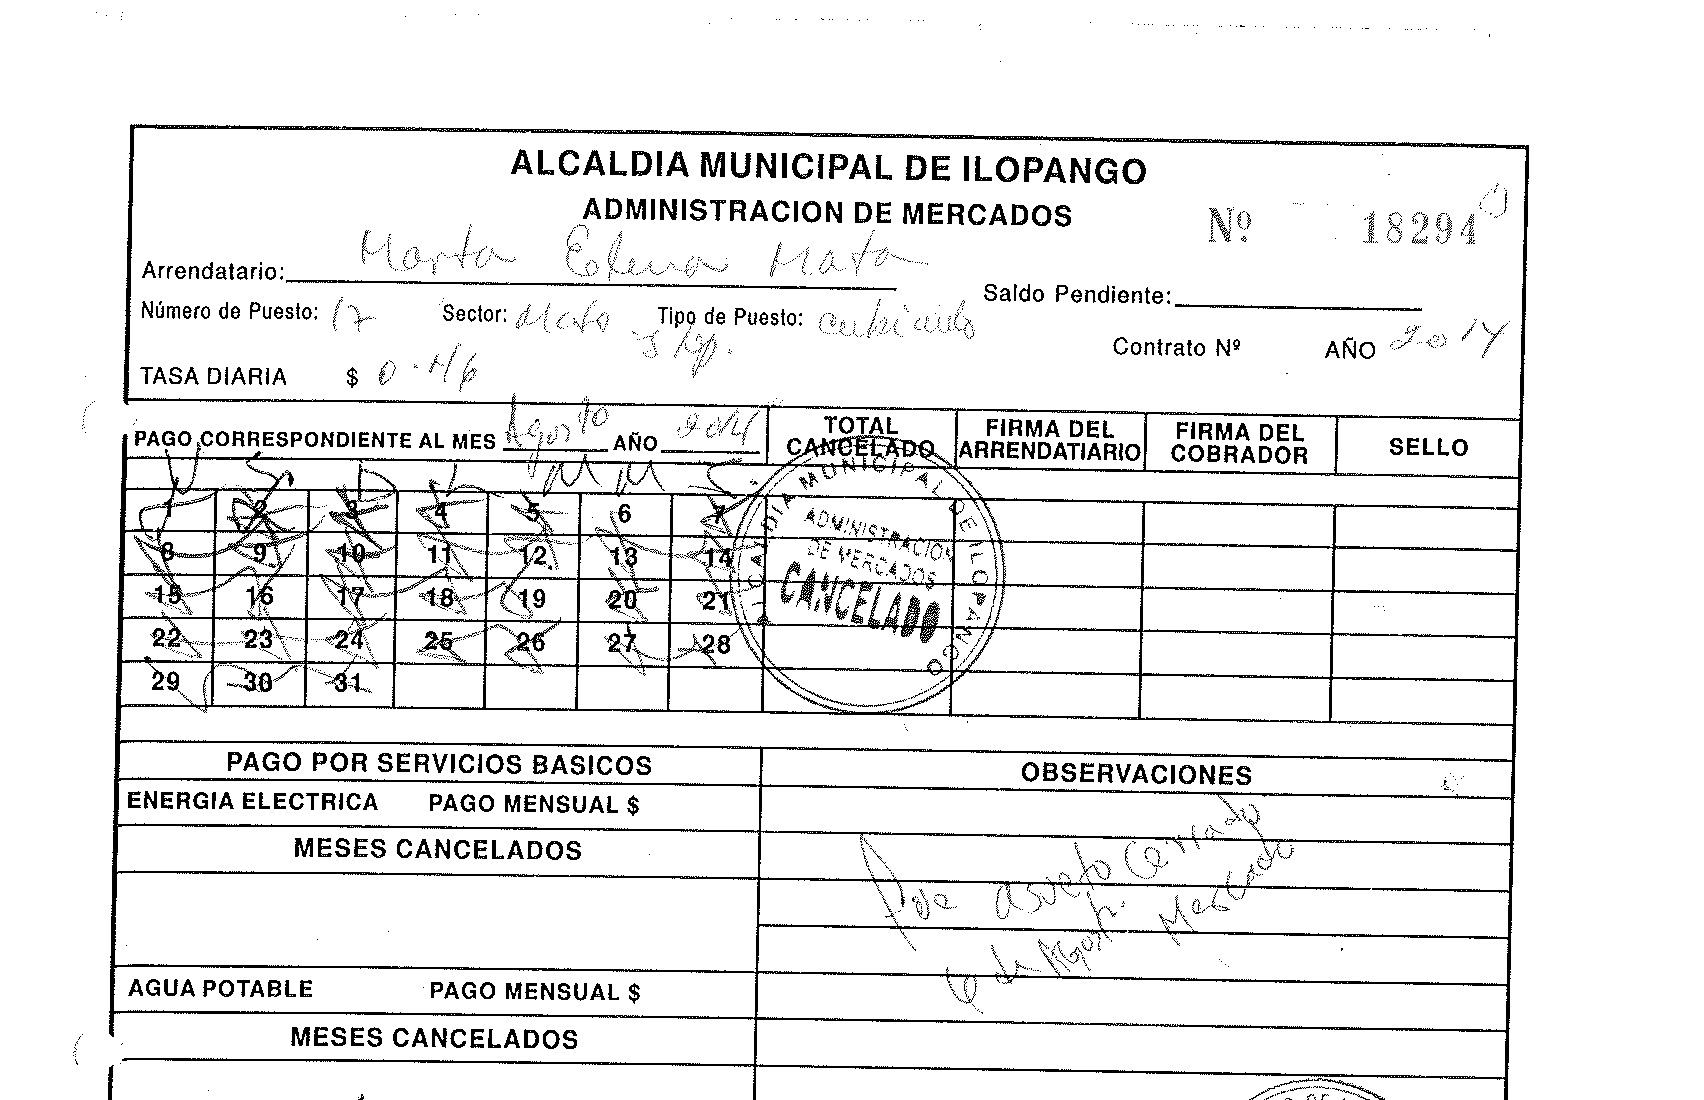 ALCALDIA MUNICIPAL DE ILOPANGO
ADMINISTRACION DE MERCADOS
Nº 18294
Arrendatario: Marta Elena Mata
Saldo Pendiente:
Número de Puesto: 17 Sector: Tipo de Puesto:
Contrato Nº AÑO 2014
TASA DIARIA $ 0.46
PAGO CORRESPONDIENTE AL MES Agosto AÑO 2014
TOTAL CANCELADO
FIRMA DEL ARRENDATIARIO
FIRMA DEL COBRADOR
SELLO
V S D L M M J
2 3 4 5 6 7
8 9 10 11 12 13 14
15 16 17 18 19 20 21
22 23 24 25 26 27 28
29 30 31
ALCALDIA MUNICIPAL DE ILOPANGO
ADMINISTRACION
DE MERCADOS
CANCELADO
PAGO POR SERVICIOS BASICOS
OBSERVACIONES
ENERGIA ELECTRICA PAGO MENSUAL $
MESES CANCELADOS
Por asueto Cerrado
6 de Agosto. Mercado
AGUA POTABLE PAGO MENSUAL $
MESES CANCELADOS